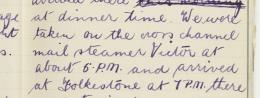 at dinner time. We were
taken on the cross channel
mail steamer Victor at
about 5-P.M. and arrived
at Folkestone at 7 P.M. there